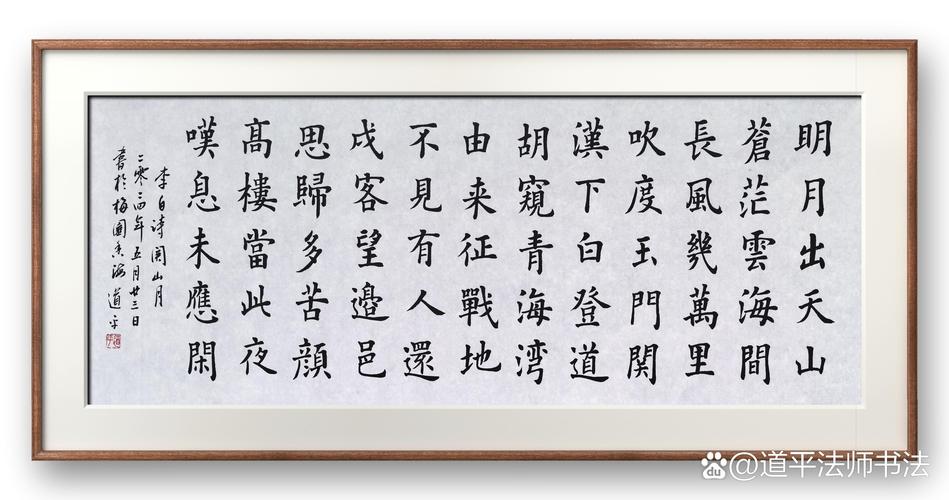 明月出天山
蒼茫雲海間
長風幾萬里
吹度玉門関
漢下白登道
胡窺青海湾
由来征戰地
不見有人還
戍客望邊邑
思歸多苦顔
高樓當此夜
嘆息未應閑
李白诗関山月
二零二四年五月廿三日
書於梅園香海道平
@道平法师书法